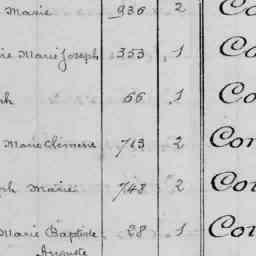 Marie 936 2 Co
Marie Joseph 353 1 Co
ph 66 1 Co
Marie Clémence 713 2 Con
ph Marie 748 2 Con
Marie Baptiste 28 1 Con
Auguste